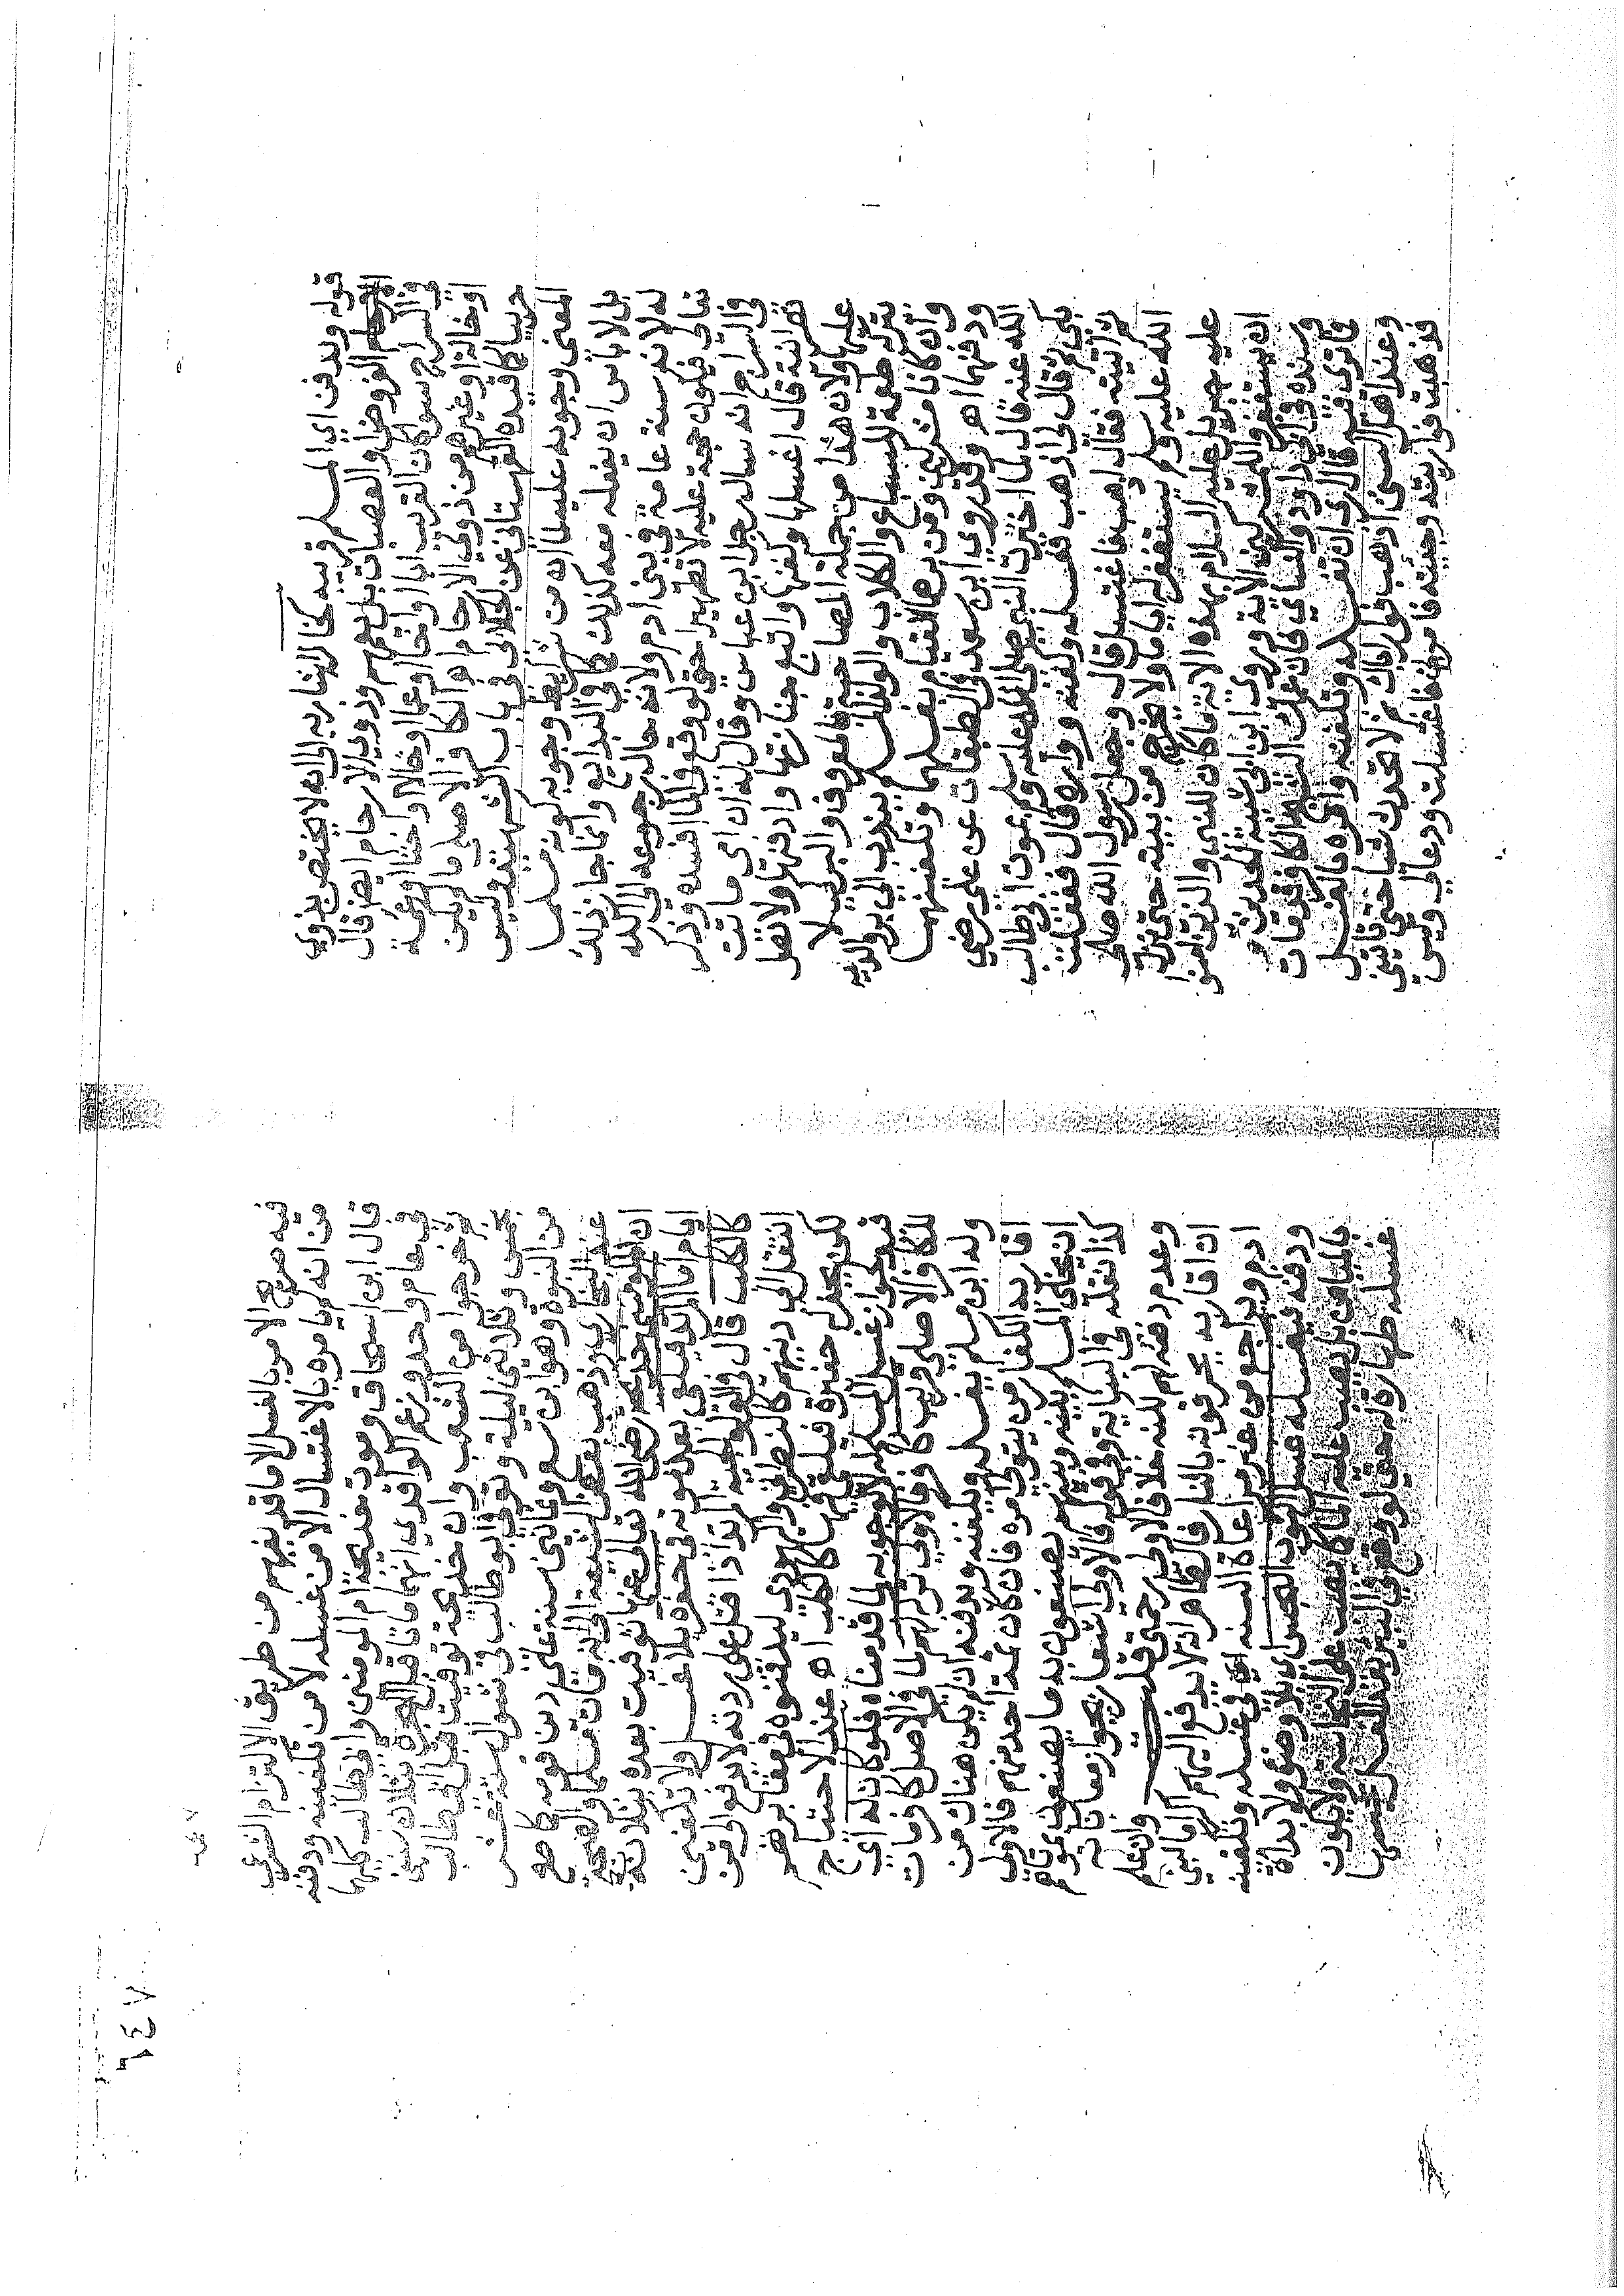 قوله ويدفن اي المسلم قريبه كخاله اشار به الى انه لا يختص بذوي
الفروض والعصبات بل يعمهم وذوي الارحام ايضا قال
في السراج سواء كان القريب ابا او اخا او عما او خالا او اختا او عمة
او خالة او غيرهم من ذوي الارحام الكافر الاصلي ما لم يكن
حربيا كما قيده القهستاني عن الجلابي في باب الشهيد وليس
المعنى وجوبه عليه لان من شرايط وجوبه كونه مسلما
بل لا باس ان يفعله معه كذلك كما في البدايع وانما جاز ذلك
له لانه سنة عامة في بني ادم ولانه حال رجوعه الى الله
تعالى فيكون حجة عليه لا تطهيرا حتى لو وقع في الماء افسده وذكر
في السراج انه سال رجل ابن عباس وقال له ان امي ماتت
نصرانية قال اغسلها وكفنها واتبع جنازتها وادفنها ولا تصل
عليها ولان هذا من جملة المصاحبة بالمعروف والبر كيلا
يتركه طعمة للسباع والكلاب والولد المسلم يندب الى بر والديه
وان كانا مشركين ومن برهما القيام بغسلهما وتكفينهما
ودفنهما اهـ وقد روى ابن سعد في الطبقات عن علي رضي
الله عنه قال لما اخبرت النبي صلى الله عليه وسلم بموت ابي طالب
بكى ثم قال لي اذهب فغسله وكفنه وواره قال ففعلت
ثم اتيته فقال اذهب فاغتسل قال وجعل رسول الله صلى
الله عليه وسلم يستغفر له اياما ولا يخرج من بيته حتى نزل
عليه جبريل عليه السلام بهذه الاية ما كان للنبي والذين امنوا
ان يستغفروا للمشركين الاية وروى ابن ابي شيبة الحديث
وسنده في ابي داود والنسائي قال ان عمك الشيخ الكافر قد مات
فما ترى فيه قال ارى ان تغسله وتكفنه وامره بالغسل
وعند اهل السنن اذهب فوار اباك ثم لا تحدث شيا حتى تاتيني
فذهبت فواريته وجئته فامرني فاغتسلت ودعا لي وليس
فيه صريح الامر بالغسل الا ما قد يفهم من طريق الالتزام الشرعي
من انه لم يامره بالاغتسال الا من غسله لا من تكفينه ودفنه
قال ابن اسحاق وموت خديجة ام المومنين وابي طالب كليهما
في عام واحد وزعم الواقدي انهما ماتا قبل الهجرة بثلاث سنين
خرجوا من الشعب وان خديجة توفيت قبل ابي طالب
بخمس وثلاثين ليلة وتوفي ابو طالب في شوال سنة عشر
من النبوة وهو ابن بضع وثمانين سنة على دين قومه كما صح
عند البخاري وذهب بعض الشيعة الى انه مات مسلما والصحيح
ان ام المومنين خديجة رضي الله تعالى عنها توفيت بعده بثلاثة
ايام اما المرتد فيلقى بعد موته في حفرة بلا غسل ولا تكفين
كالكلب قال في الولوالجية المرتد اذا قتل على ردته لا يدفع الى من
انتقل الى دينهم كالنصراني واليهودي ليدفنوه في مقابرهم
لكن يحفر حفيرة فيلقى فيها كالكلب اهـ عند الاحتياج
قيد لجواز غسل المسلم له لا لوجوبه لما قدمناه فلو كان له اي
للكافر الاصلي قريب كافر فالاولى تركه لهم لما في الاصل كافر مات
وله ابن مسلم يغسله ويكفنه ويدفنه ان لم يكن هناك من
اقاربه الكفار من يتولى امره فان كان ثمة احد منهم فالاولى
ان يخلي المسلم بينه وبينهم يصنعون به ما يصنعون بموتاهم
كذا نقله في العناية وفي قوله فالاولى اشعار بجواز معاناته
وعدم دفعه لهم لكنه خلاف الاولى رحمتي قلت وان علم
ان اقاربه يحرقونه بالنار فالظاهر انه لا يدفع اليهم اكراما لبني
ادم ويراجع من غير مراعاة السنة اي في غسله وتكفينه
ودفنه فيغسله غسل الثوب النجس اي بلا وضوء ولا بداءة
بالميامن بل يصب عليه الماء كما يصب على النجاسة ولا يكون
غسله طهارة له حتى لو وقع في البير بعد الغسل نجسها
٦٤٧